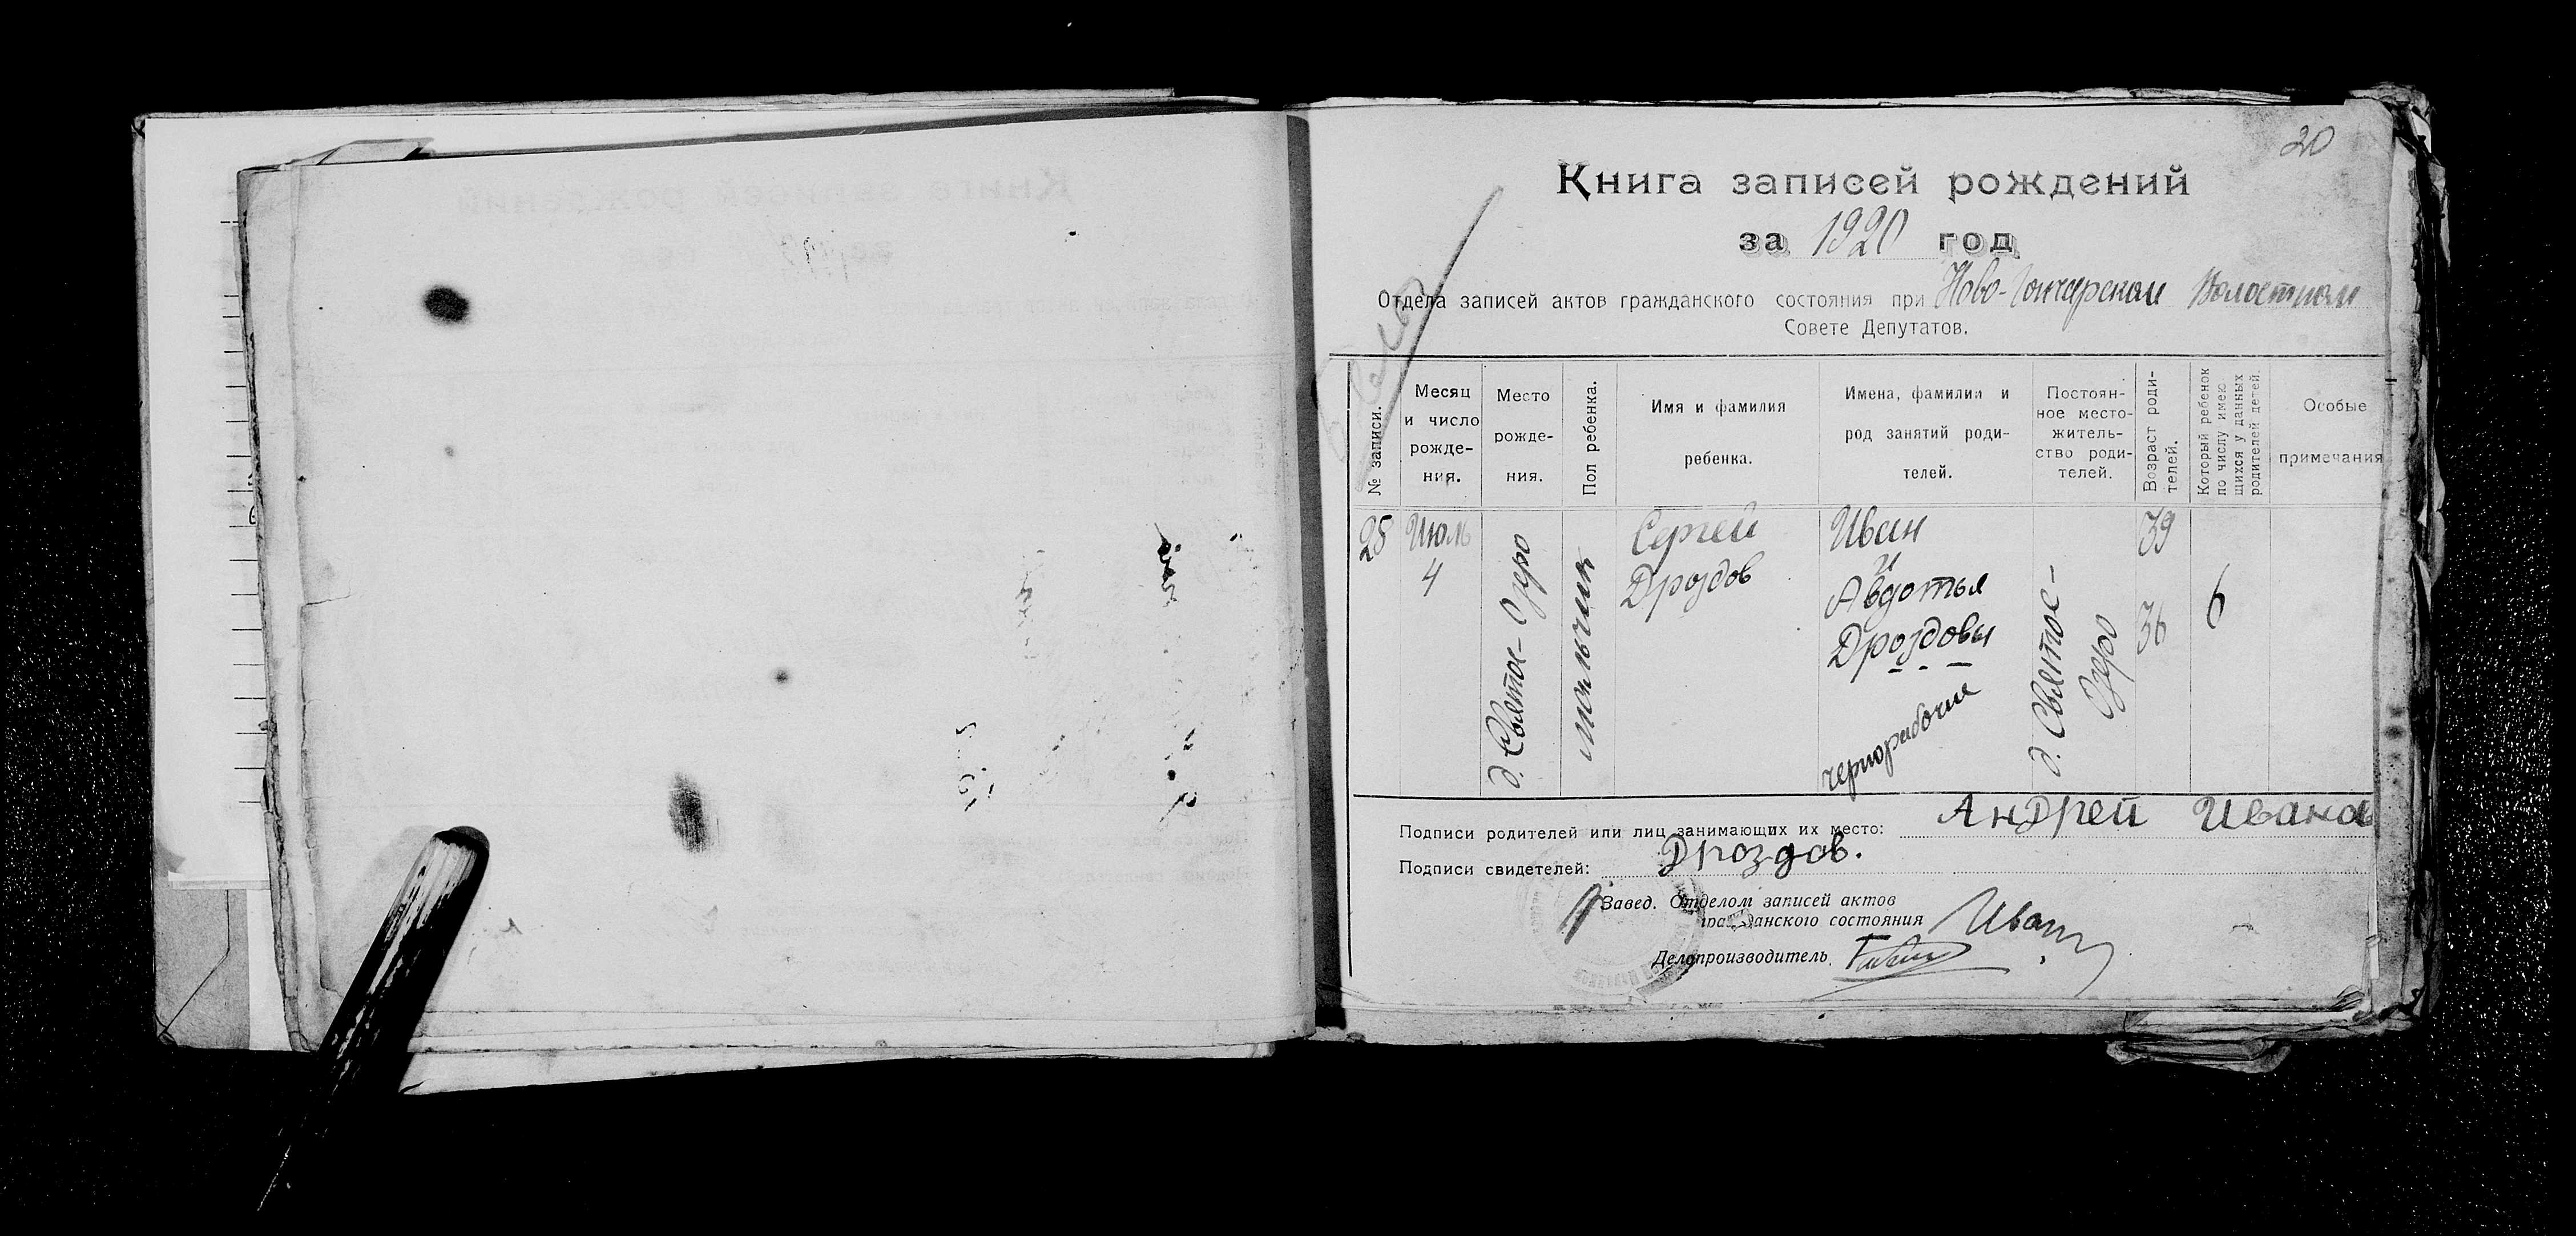 20
Книга записей рождений
за 1920 год
Отдела записей актов гражданского состояния при Ново-Гончарском Волостном
Совете Депутатов.
№ записи.
Месяц
и число
рожде-
ния.
Место
рожде-
ния.
Пол ребенка.
Имя и фамилия
ребенка.
Имена, фамилии и
род занятий роди-
телей.
Постоян-
ное место-
житель-
ство роди-
телей.
Возраст роди-
телей.
Который ребенок
по числу имею
щихся у данных
родителей детей.
Особые
примечания
28
Июль
4
д. Святое-Озеро
мальчик
Сергей
Дроздов
Иван
и
Авдотья
Дроздовы
чернорабочие
д. Святое-
Озеро
39
36
6
Подписи родителей или лиц занимающих их место: Андрей Иванов
Подписи свидетелей: Дроздов.
Завед. Отделом записей актов
гражданского состояния
Делопроизводитель